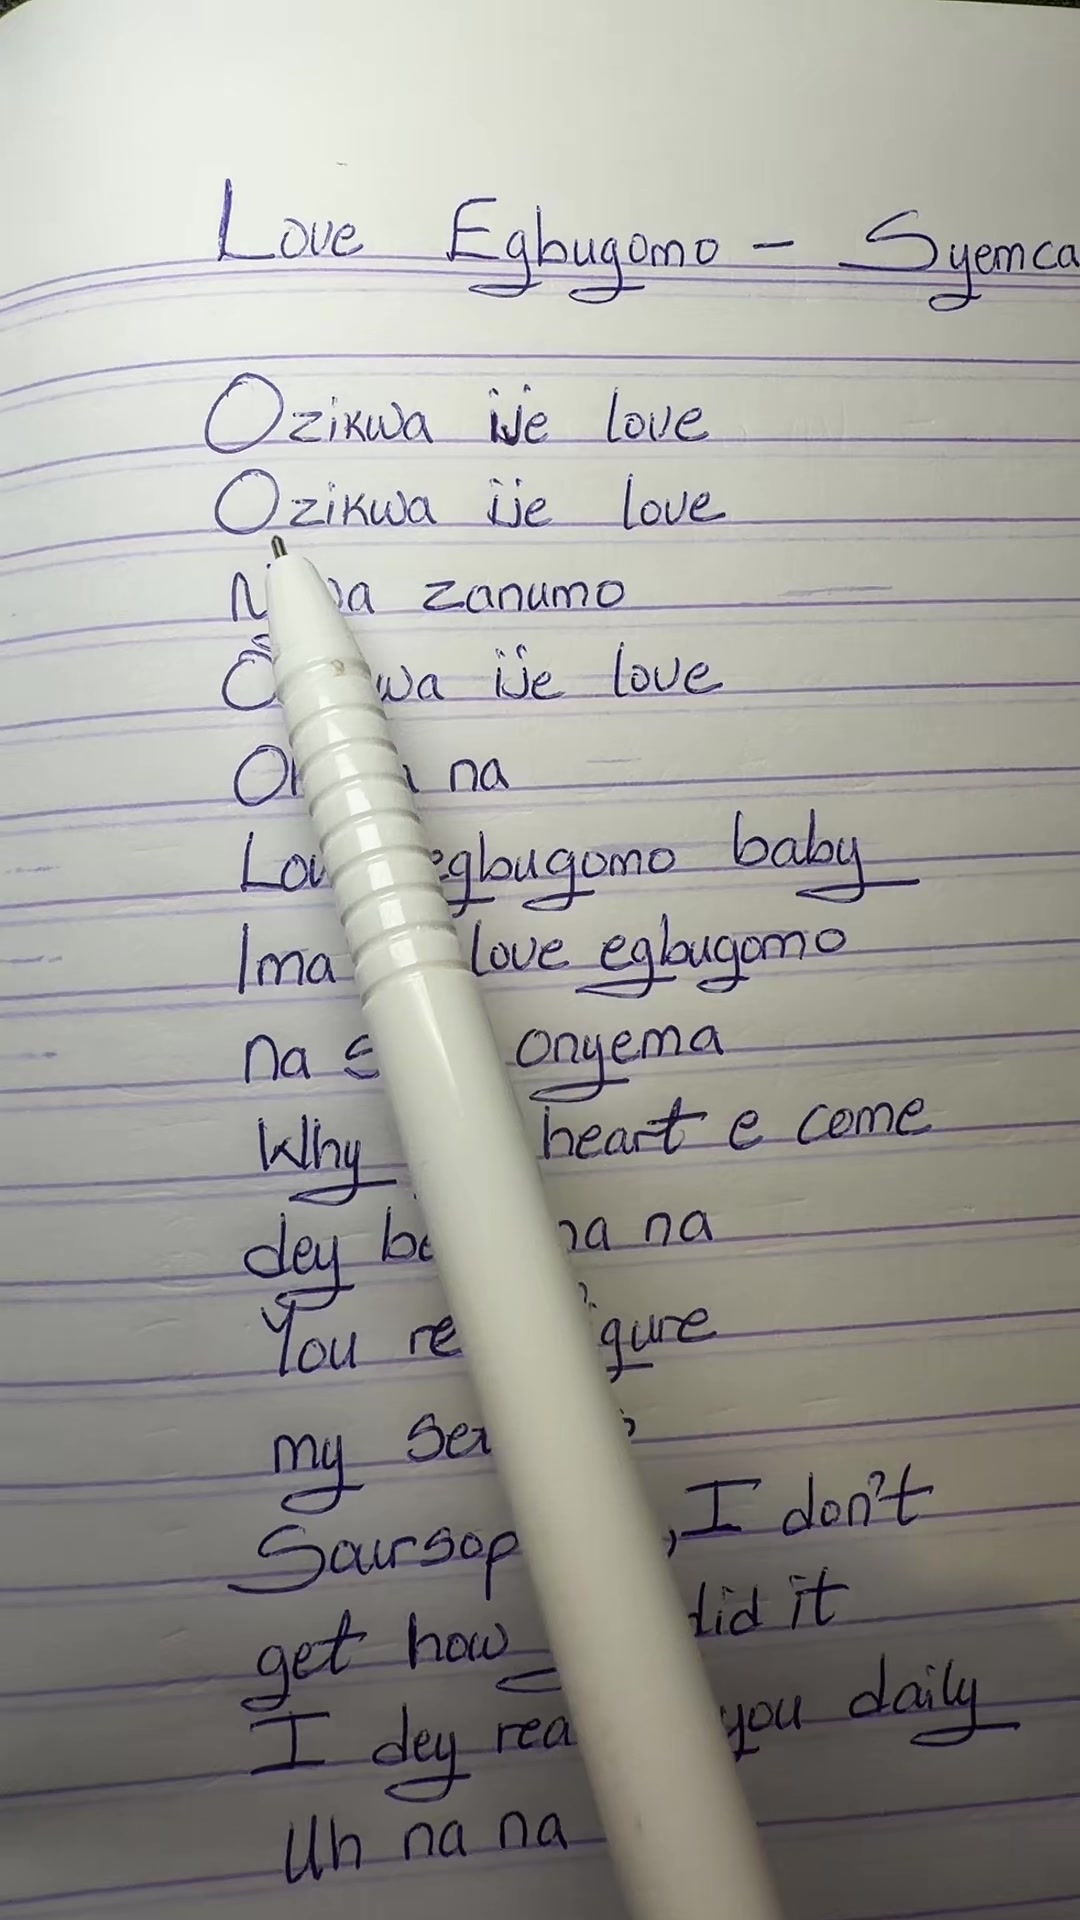 Love Egbugomo - Syemca
Ozikwa ije love
Ozikwa ije love
zanumo
ije love
na
egbugomo baby
Ima love egbugomo
na onyema
Why heart e come
dey na na
You
my
I don't
get how did it
I dey you daily
Uh na na